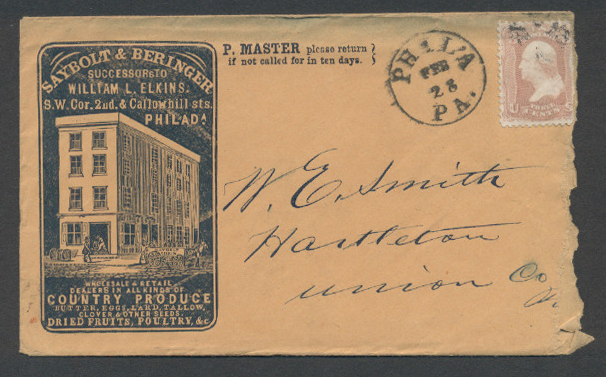 SAYBOLT & BERINGER
SUCCESSORS TO
WILLIAM L. ELKINS.
S.W. Cor. 2nd. & Callowhill sts.
PHILADA
WHOLESALE & RETAIL
DEALERS IN ALL KINDS OF
COUNTRY PRODUCE
BUTTER, EGGS, LARD, TALLOW,
CLOVER & OTHER SEEDS,
DRIED FRUITS, POULTRY, &c
P. MASTER please return
if not called for in ten days.
PHIL'A
FEB
28
PA.
U S
THREE
CENTS
W. E. Smith
Hartleton
Union Co